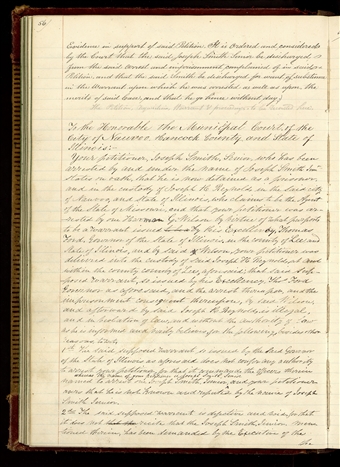 56
Evidence in support of said Petition. It is ordered and considered
by the Court that the said Joseph Smith Senior be discharged
from the said arrest and imprisonment complained of in said
Petition and that the said Smith be discharged for want of substance
in the Warrant upon which he was arrested as well as upon the
merits of said case, and that he go hence without day.
To the Honorable the Municipal Court of the
City of Nauvoo, Hancock County, and State of
Illinois:
Your petitioner, Joseph Smith, Senior, who has been
arrested by and under the name of Joseph Smith Jun
States on oath, that he is now detained as a prisoner
and in the custody of Joseph H. Reynolds in the said city
of Nauvoo, and State of Illinois, who claims to be the Agent
of the State of Missouri, and that your petitioner was arr-
ested by one Harmon G. Wilson by virtue of what purports
to be a warrant issued by His Excellency, Thomas
Ford, Governor of the State of Illinois, in the county of Lee and
State of Illinois, and by said Wilson your petitioner was
delivered into the custody of said Joseph H. Reynolds, at and
within the county of Lee, aforesaid; that said sup-
posed warrant, so issued by his Excellency, Thos. Ford
Governor as aforesaid, and the arrest thereupon, and the
imprisonment consequent thereupon, by said Wilson,
and afterwards by said Joseph H. Reynolds, is illegal,
and in violation of law, and without the authority of law
as he is informed and verily believes, for the following, besides other
reasons to wit:
1st. The said supposed warrant so issued by the said Governor
of the State of Illinois as aforesaid does not confer any authority
to arrest your petitioner, for that it commands the officers therein
named to arrest one Joseph Smith, Junior,
name of your Petitioner is Joseph Smith Senior
and your petitioner
avers that he is not known and reputed by the name of Joseph
Smith Junior.
2nd. The said supposed warrant is defective and
it does not state that the Joseph Smith Junior
therein, has been demanded by the Executive of the